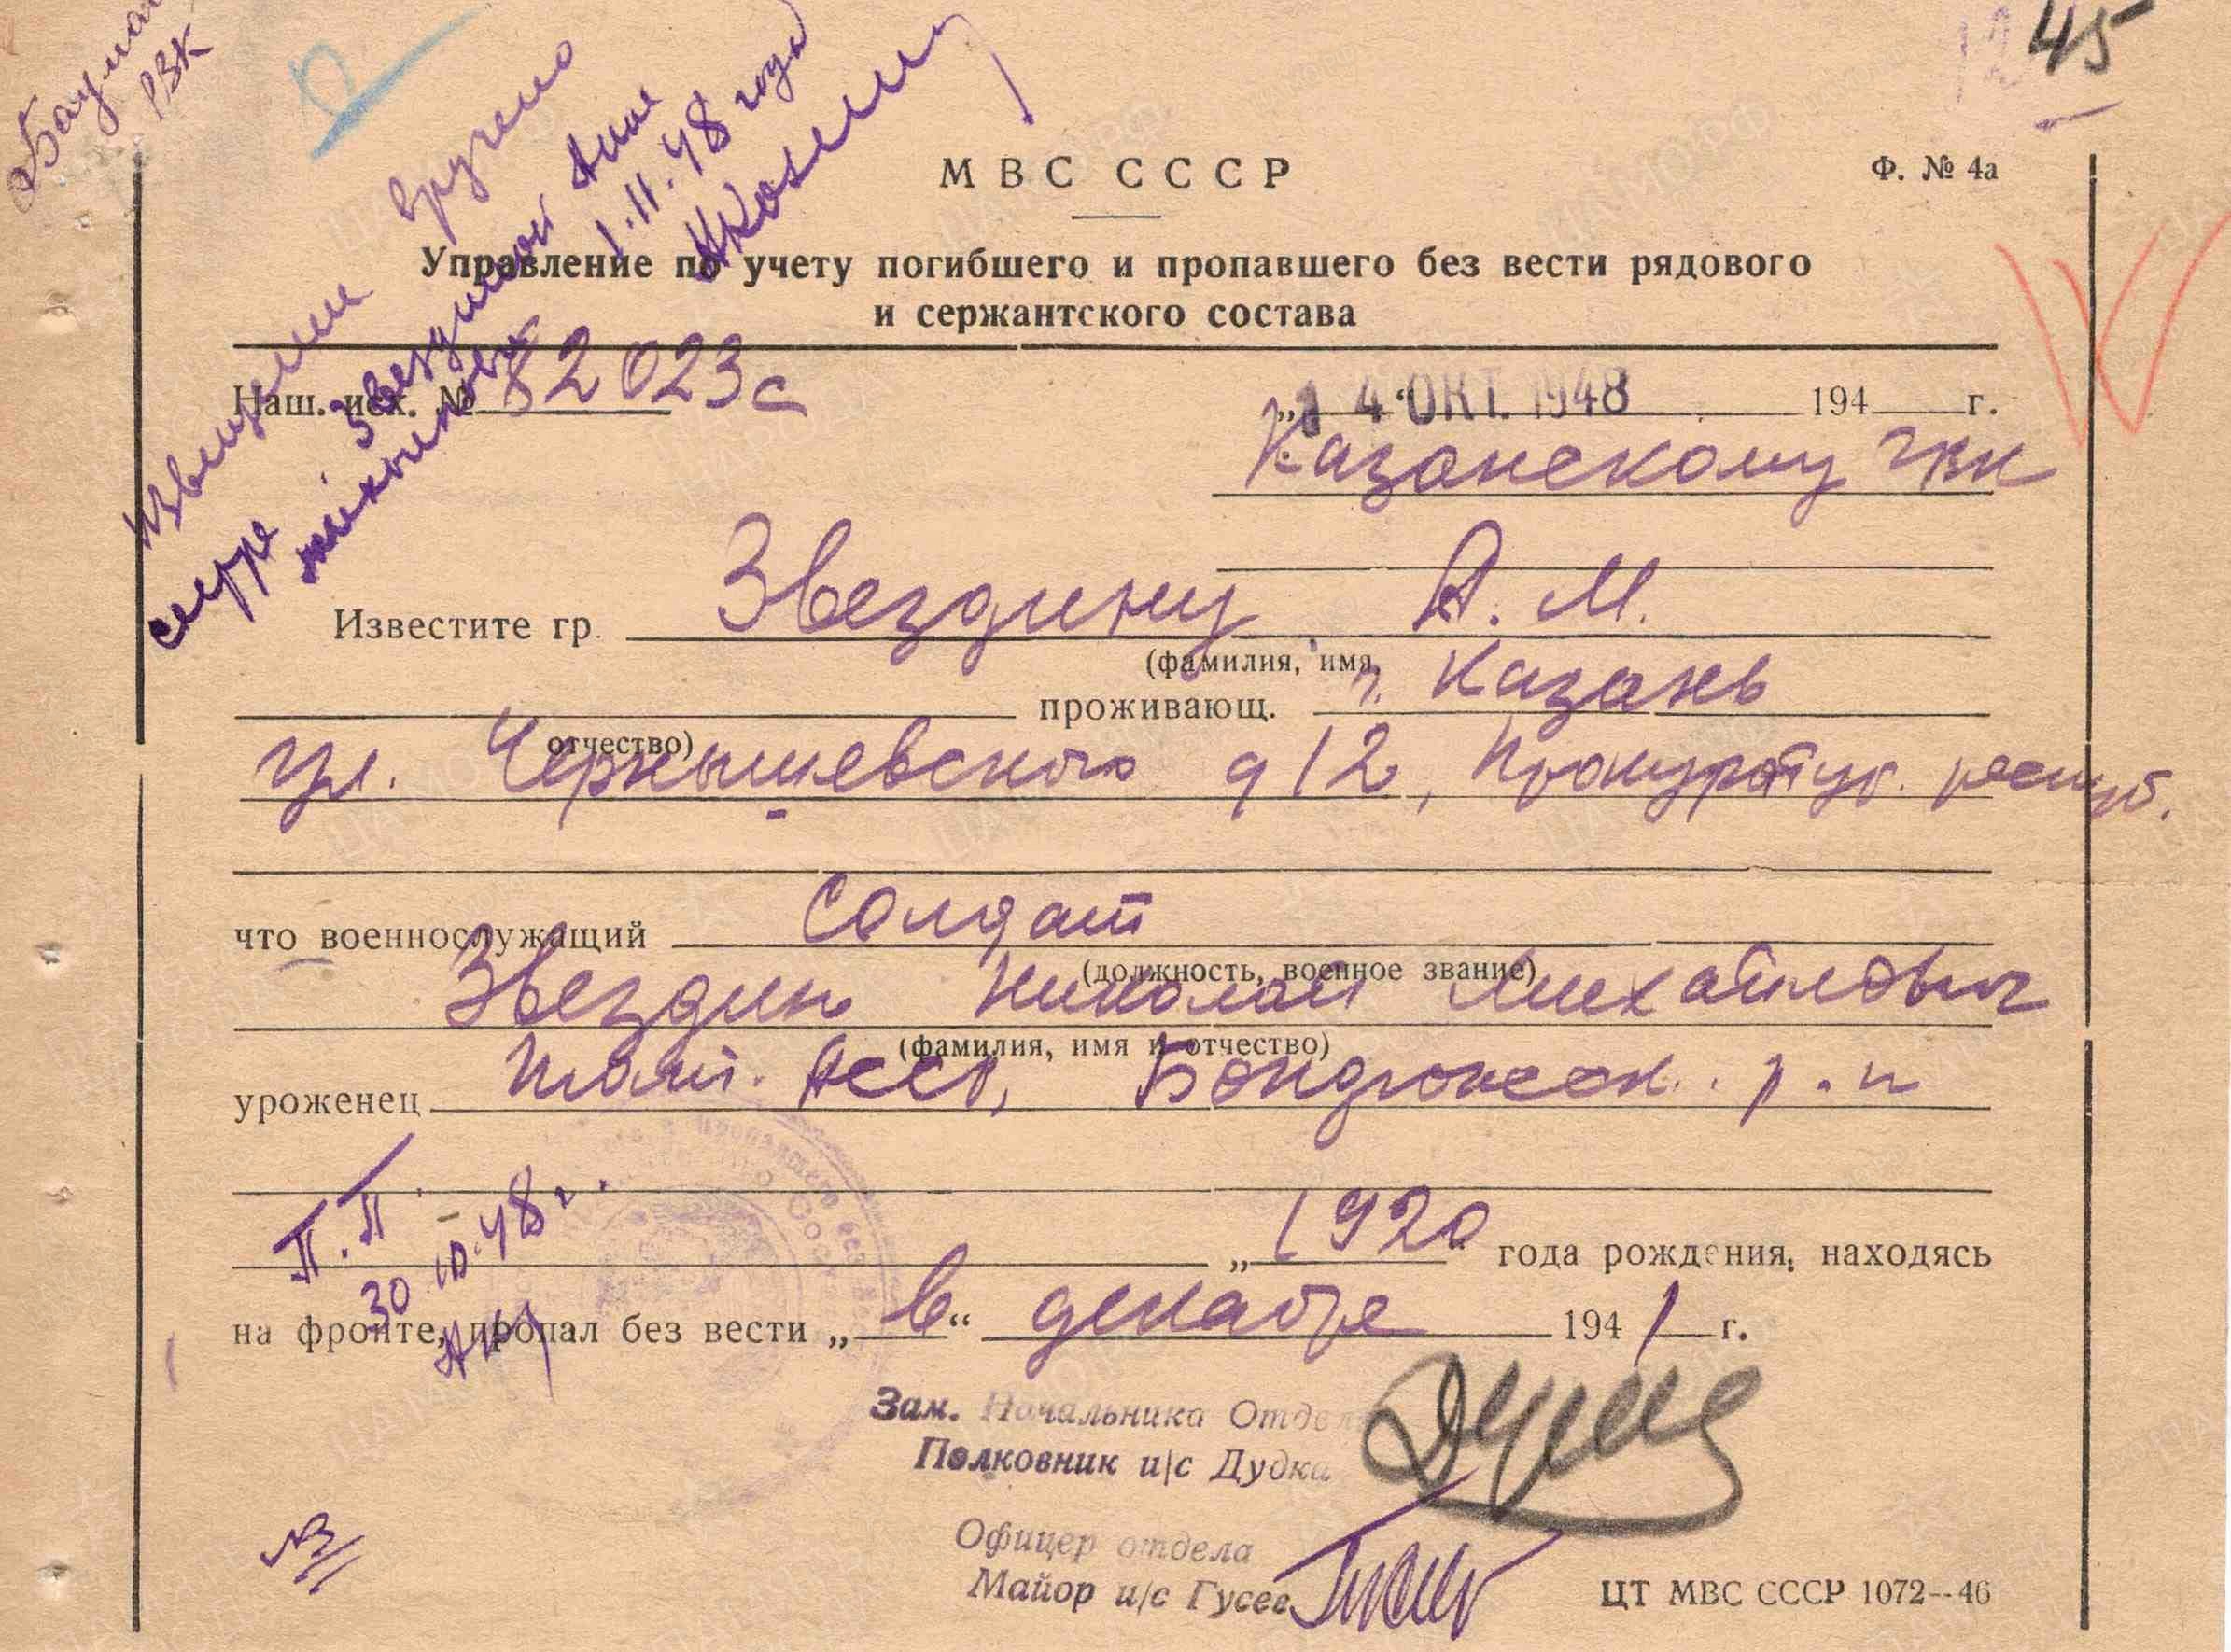 РВК
45
Извещении вручено
сестре Звездиной Анне
Михайловне 1.11.48 года
МВС СССР
Ф. № 4а
Управление по учету погибшего и пропавшего без вести рядового
и сержантского состава
Наш. исх. № 82023с
„14“ ОКТ. 1948 194 г.
Казанскому ГВК
Известите гр. Звездину А. М.
(фамилия, имя,
проживающ. г. Казань
отчество)
ул. Чернышевского д 12, Прокуратур. респуб.
что военнослужащий солдат
(должность, военное звание)
Звездин Николай Михайлович
(фамилия, имя и отчество)
уроженец Тат. АССР, Бондюжск. р-н
П.П.
30.10.48 г.
„1920 года рождения, находясь
на фронте, пропал без вести „в“ декабре 1941 г.
Зам. Начальника Отдела
Полковник и/с Дудка
Офицер отдела
Майор и/с Гусев
ЦТ МВС СССР 1072--46